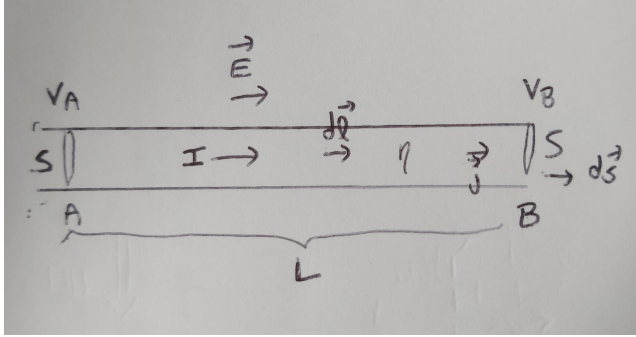 E⃗
V_A V_B
dl⃗
S I → η J⃗ S
dS⃗
A B
L